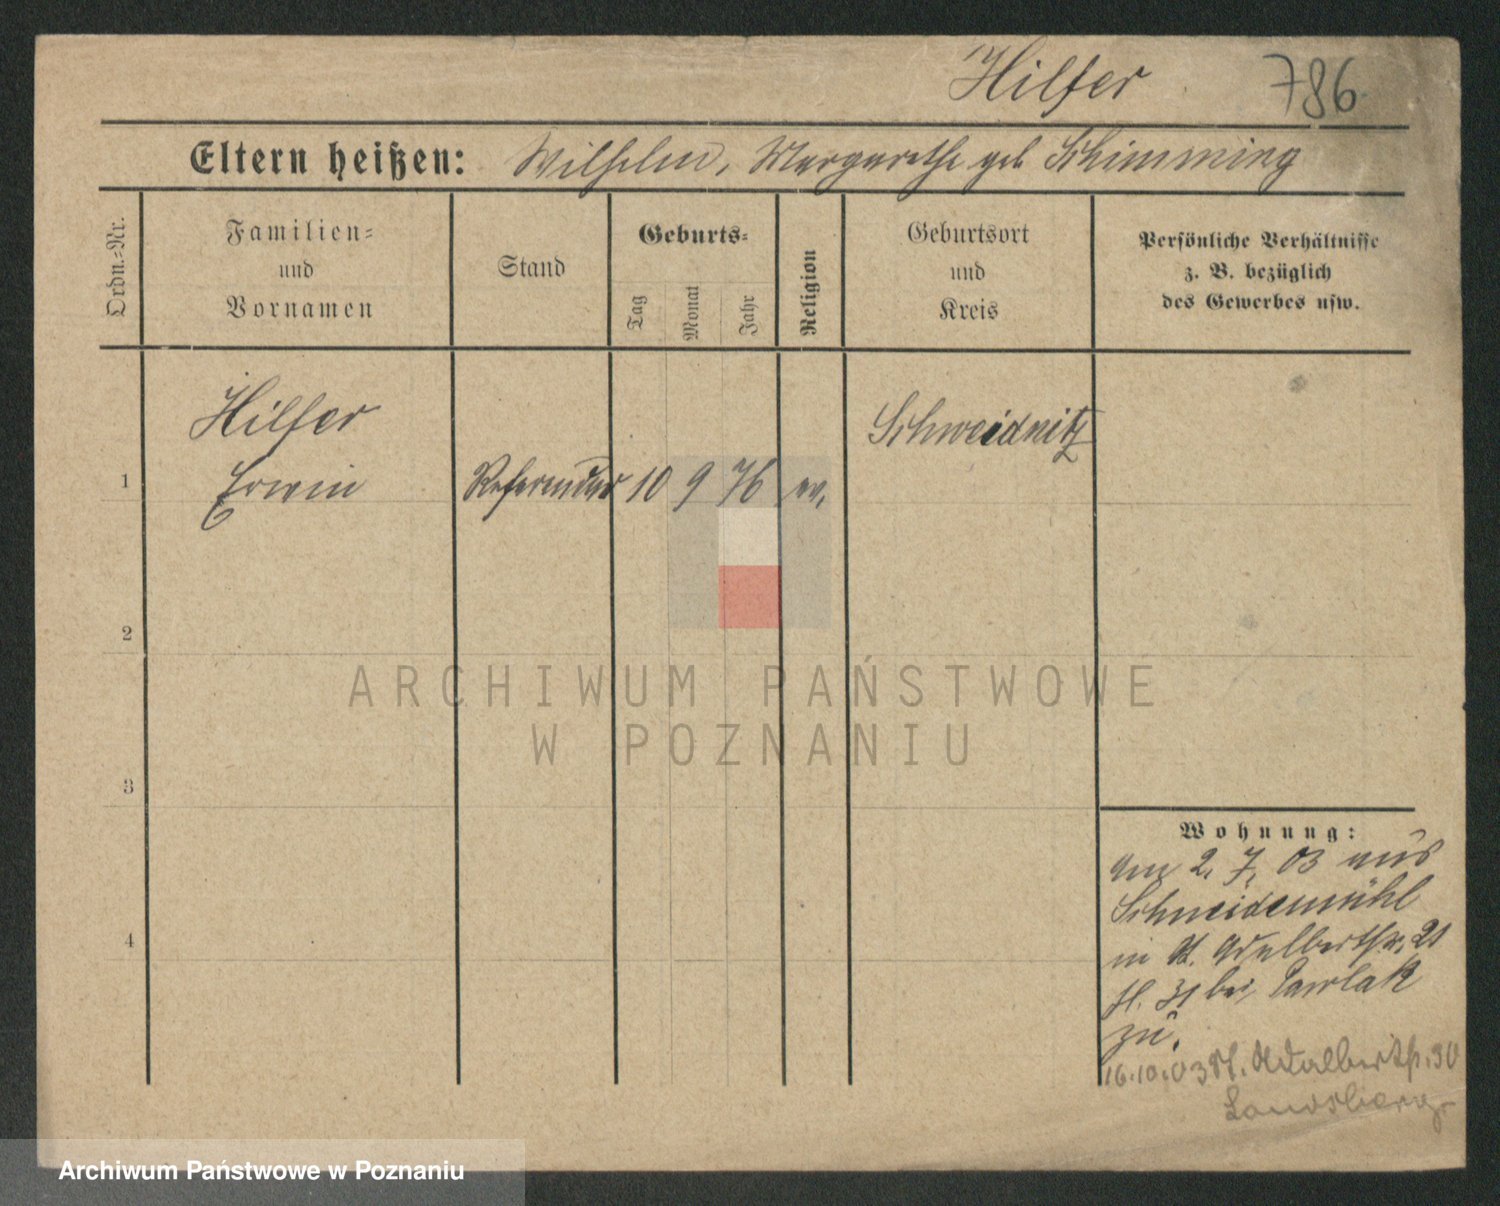 Hilfer 786
Eltern heißen: Wilhelm, Margarethe geb Schimming
Ordn.-Nr.
Familien-
und
Vornamen
Stand
Geburts-
Tag
Monat
Jahr
Religion
Geburtsort
und
Kreis
Persönliche Verhältnisse
z. B. bezüglich
des Gewerbes usw.
Hilfer
Schweidnitz
1 Erwin Referendar 10 9 76 ev.
2
ARCHIWUM PAŃSTWOWE
W POZNANIU
3
Wohnung:
am 2. 7. 03 aus
Schneidemühl
4
in St. Adalbertstr. 21
bei Pawlak
zu.
16.10.03 St. Adalbertstr. 30
Landsberg
Archiwum Państwowe w Poznaniu